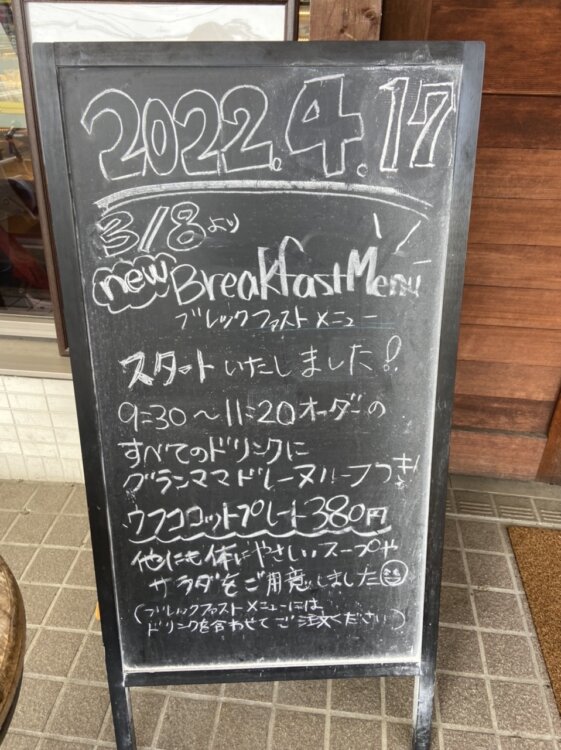 2022.4.17
3/8より
new Breakfast Menu
ブレックファストメニュー
スタートいたしました!
9:30～11:20オーダーの
すべてのドリンクに
グランママドレーヌハーフつき!
ウフココットプレート380円
他にも体にやさしいスープや
サラダをご用意しました
(ブレックファストメニューには
ドリンクを合わせてご注文ください)